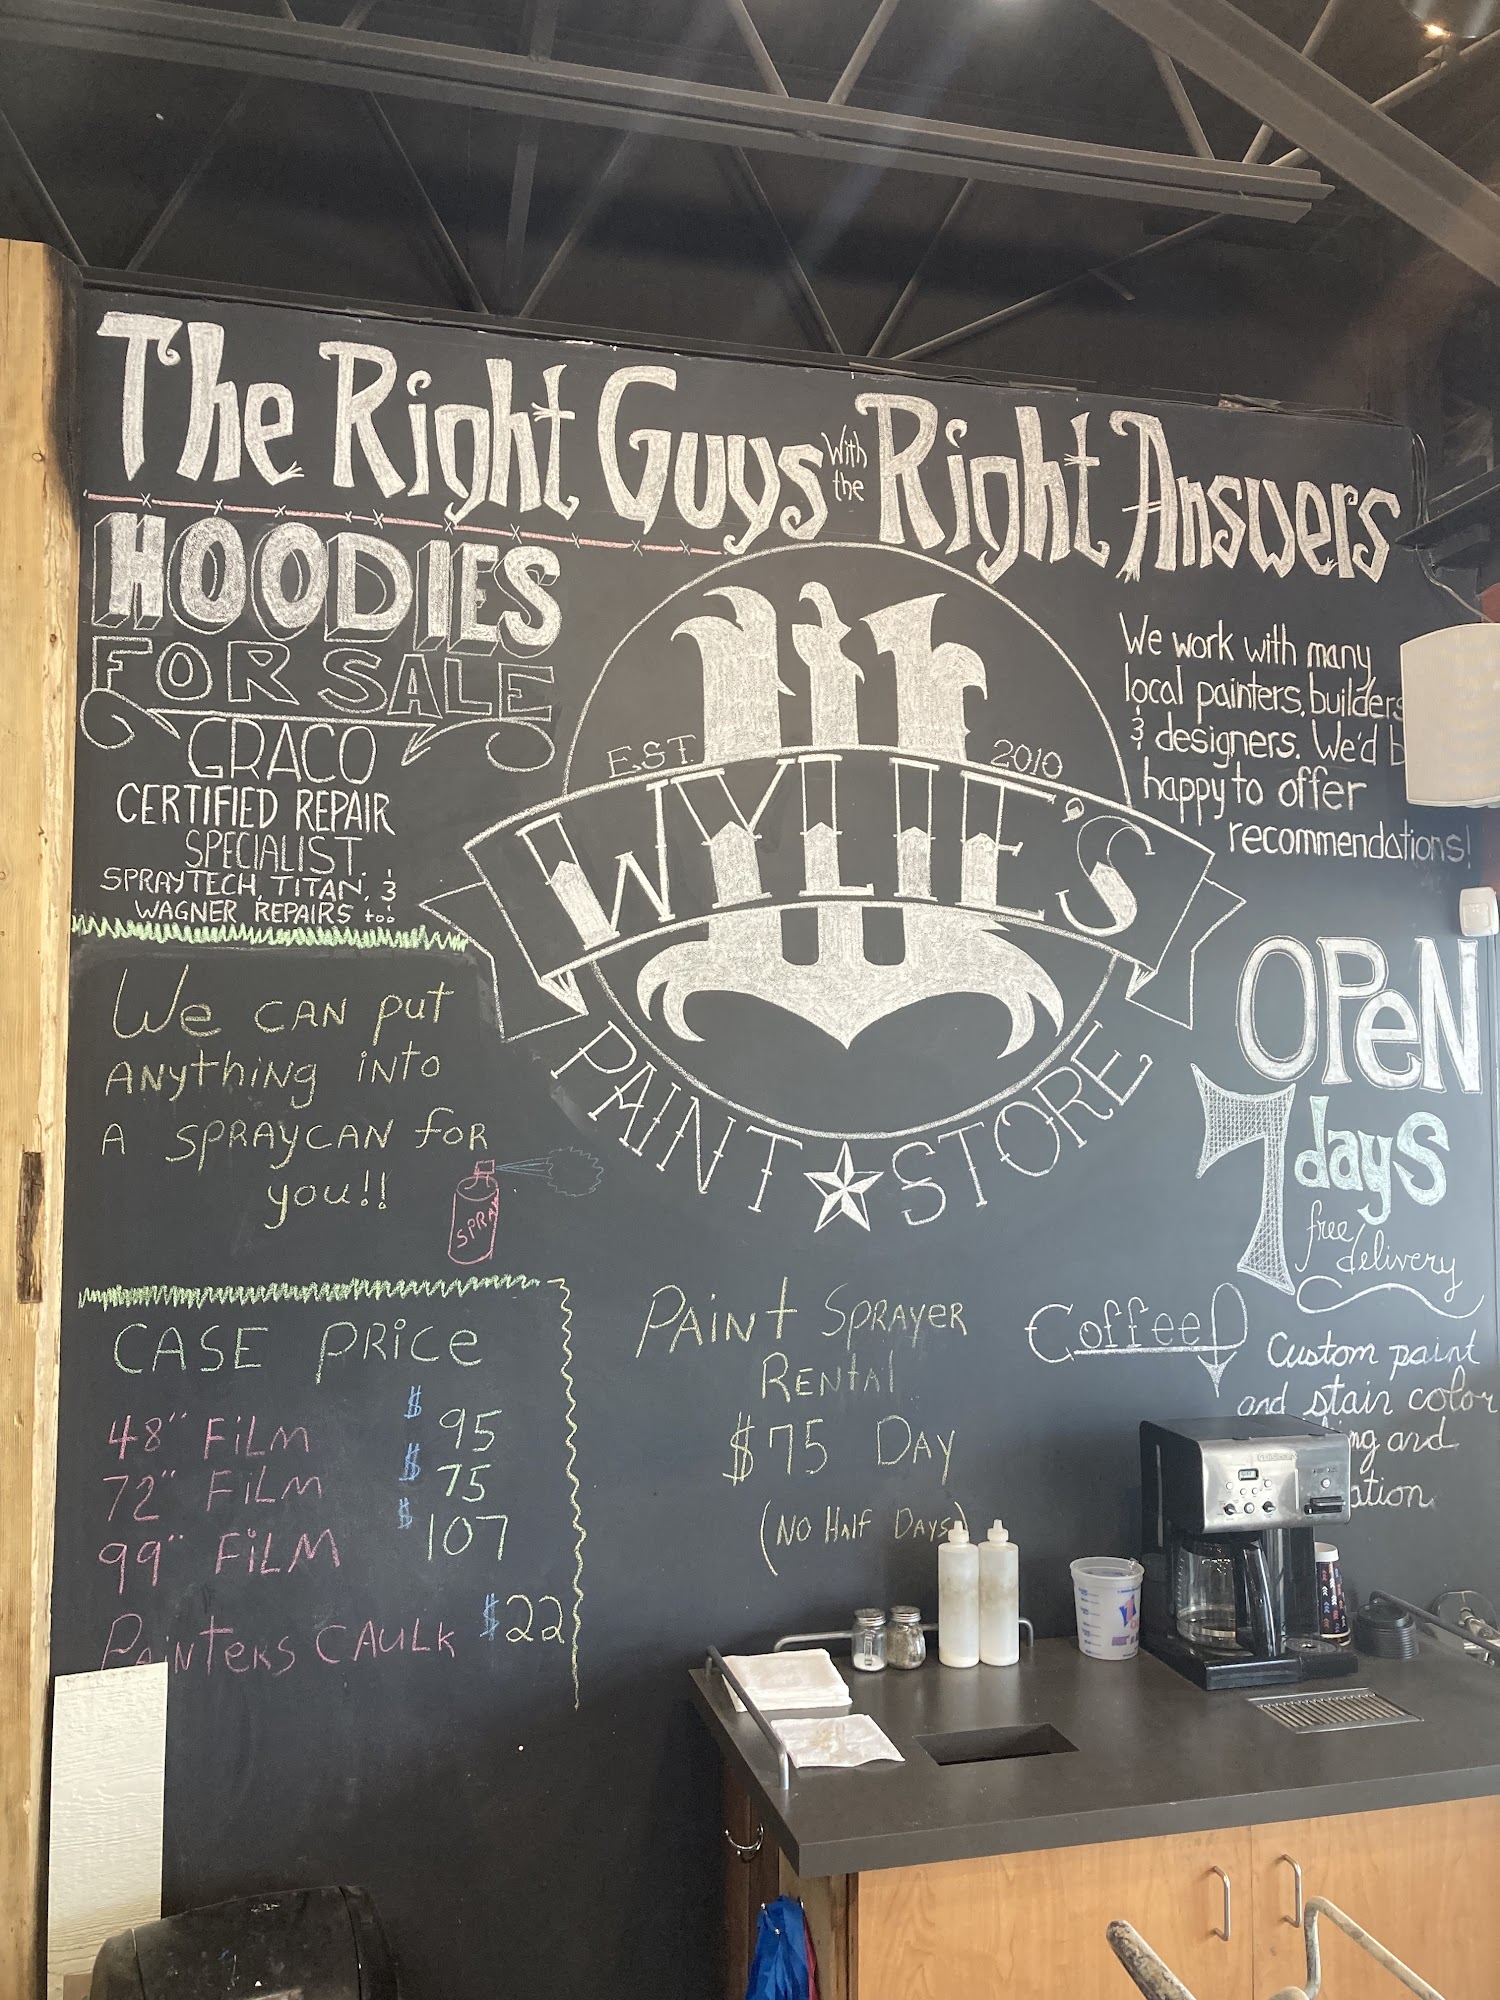 The Right Guys With the Right Answers
HOODIES
FOR SALE
GRACO
CERTIFIED REPAIR
SPECIALIST.
SPRAYTECH, TITAN, &
WAGNER REPAIRS too
We CAN put
ANything iNto
A SPRAYCAN foR
you!!
SPRAY
CASE PRiCe
48" FiLM $95
72" FiLM $75
99" FiLM $107
PAiNTERS CAULK $22
EST. 2010
WYLIE'S
PAINT STORE
We work with many
local painters, builders
& designers. We'd b
happy to offer
recommendations!
OPeN
7 days
free delivery
PAiNt SPRAYER
RENTAl
$75 DAY
(NO HAlf DAYS)
Coffee
Custom paint
and stain color
ing and
ation